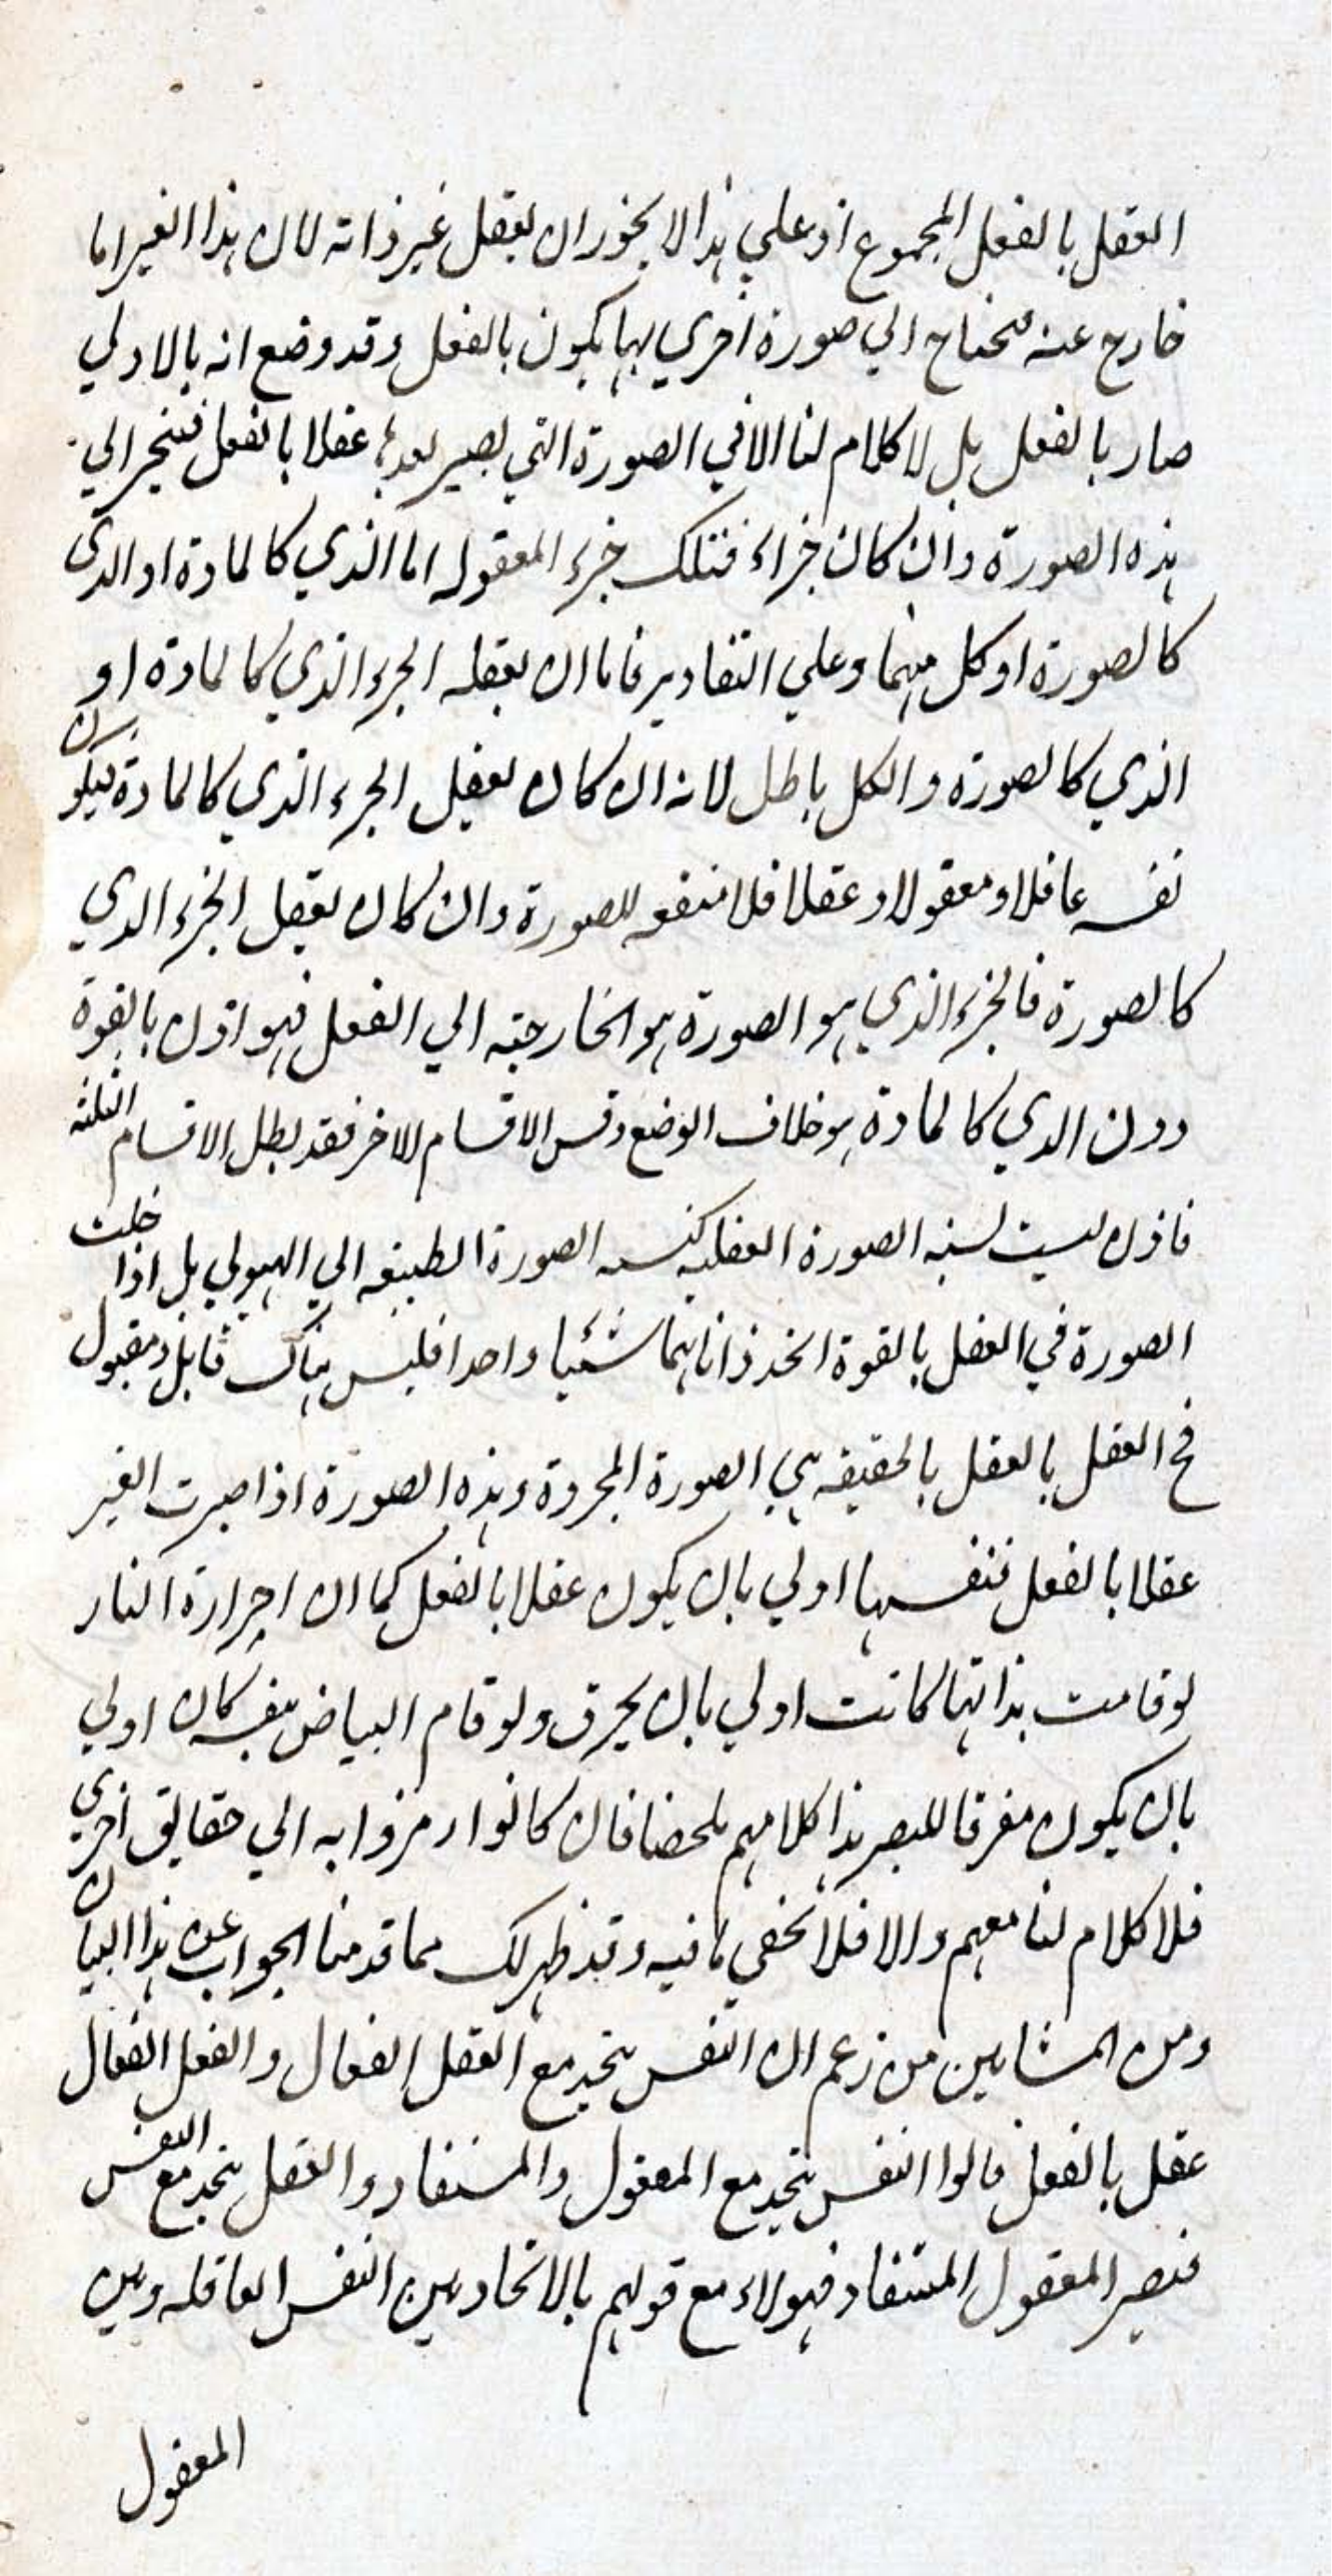 العقل بالفعل المجموع اذ علي هذا لا يجوز ان يعقل غير ذاته لان هذا الغير اما
خارج عنه فيحتاج الي صورة اخري بها يكون بالفعل وقد وضع انه بالاولي
صار بالفعل بل لا كلام لنا الا في الصورة التي يصير بعدها عقلا بالفعل فينجر الي
هذه الصورة وان كان جزاء فتلك جزء المعقوله اما الذي كالمادة او الذي
كالصورة او كل منهما وعلي التقادير فاما ان يعقله الجزء الذي كالمادة او
الذي كالصورة والكل باطل لانه ان كان يعقل الجزء الذي كالمادة فيكون
نفسه عاقلا ومعقولا وعقلا فلا منفعه للصورة وان كان يعقل الجزء الذي
كالصورة فالجزء الذي هو الصورة هو الخارجته الي الفعل فهو اذن بالقوة
دون الذي كالمادة هو خلاف الوضع وقس الاقسام الاخر فقد بطل الاقسام الثلثه
فاذن ليست نسبه الصورة العقليه كنسبه الصورة الطبيعه الي الهيولي بل اذا حلت
الصورة في العقل بالقوة اتحد ذاتاهما شئيا واحدا فليس هناك قابل ومقبول
فح العقل بالعقل بالحقيقه هي الصورة المجردة وهذه الصورة اذا صيرت الغير
عقلا بالفعل فنفسها اولي بان يكون عقلا بالفعل كما ان احرارة النار
لو قامت بذاتها كانت اولي بان يحرق ولو قام البياض بنفسه كان اولي
بان يكون مفرقا للبصر هذا كلامهم ملخصا فان كانوا رمزوا به الي حقايق اخري
فلا كلام لنا معهم والا فلا تخفي ما فيه وقد ظهر لك مما قدمنا الجواب عن هذا البيان
ومن المشايين من زعم ان النفس يتحد مع العقل الفعال والفعل الفعال
عقل بالفعل قالوا النفس يتحد مع المعقول والمستفاد والعقل يتحد مع النفس
فيصير المعقول المستفاد فهولاء مع قولهم بالاتحاد بين النفس العاقله وبين
المعقول